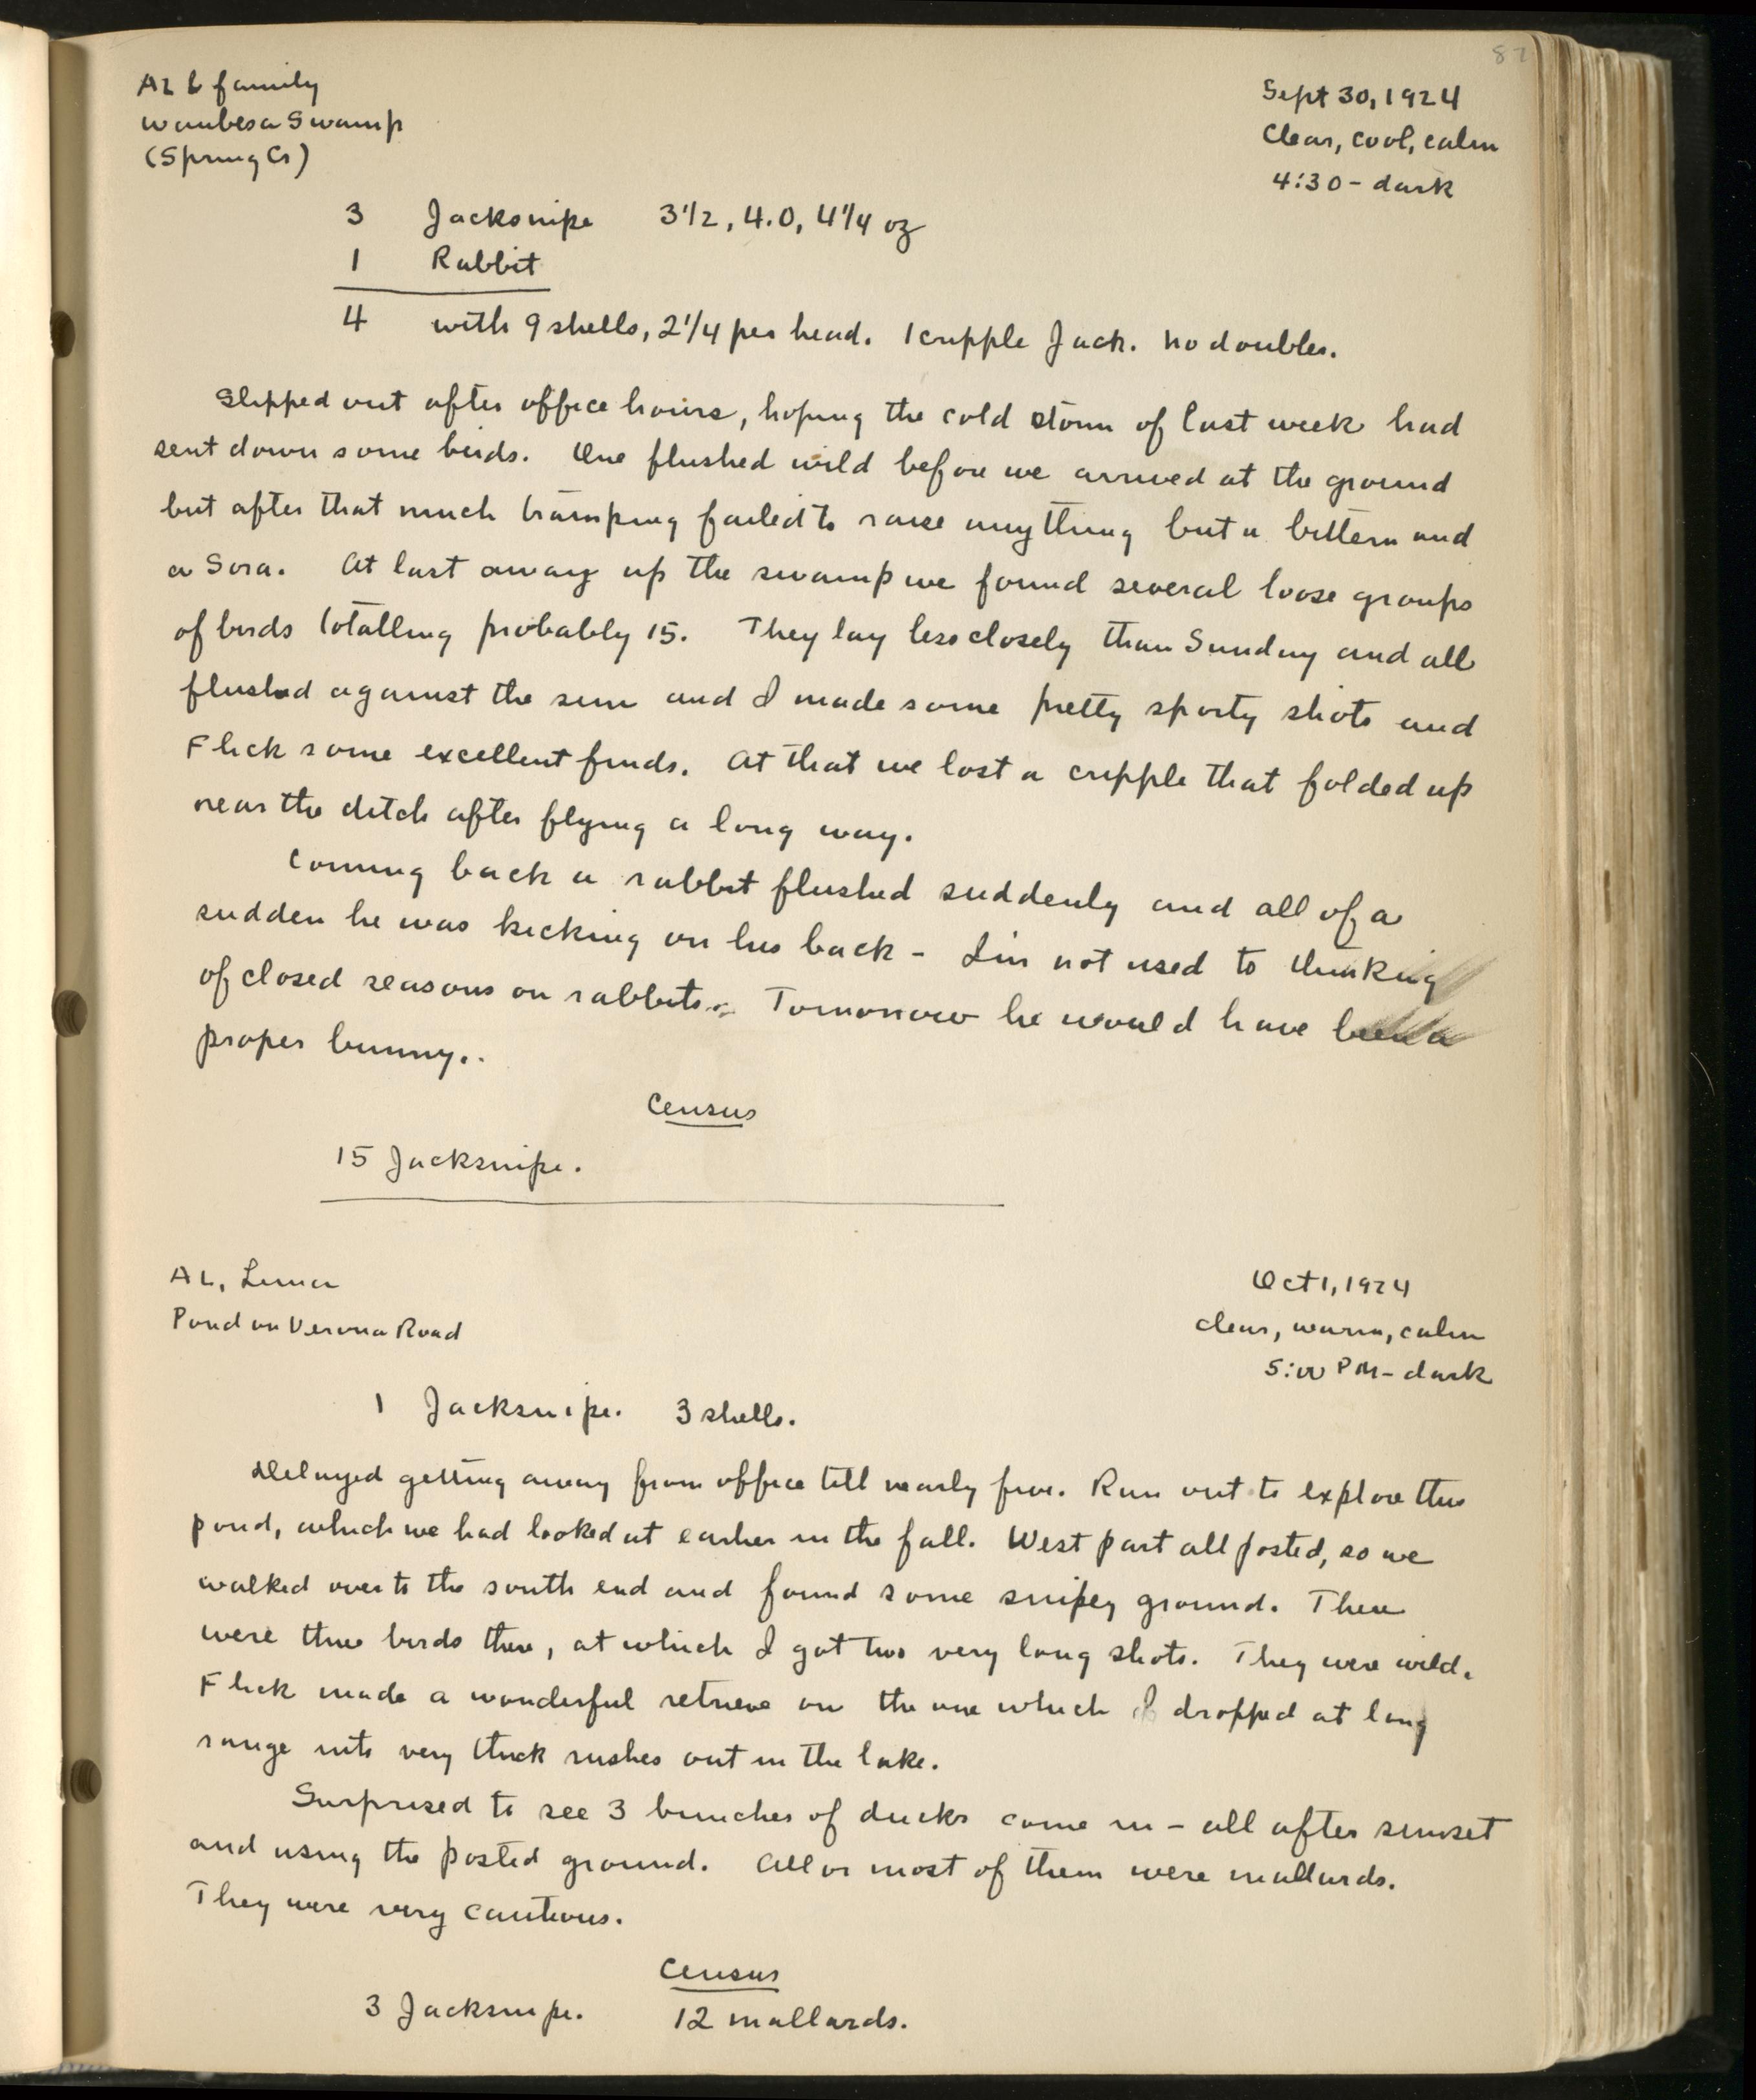 87
AL & family
Waubesa Swamp
(Spring Cr)
Sept 30, 1924
Clear, cool, calm
4:30 - dark
3 Jacksnipe 3 1/2, 4.0, 4 1/4 oz
1 Rabbit
4 with 9 shells, 2 1/4 per head. 1 cripple Jack. No doubles.
Slipped out after office hours, hoping the cold storm of last week had
sent down some birds. One flushed wild before we arrived at the ground
but after that much tramping failed to raise anything but a bittern and
a Sora. At last away up the swamp we found several loose groups
of birds totalling probably 15. They lay less closely than Sunday and all
flushed against the sun and I made some pretty sporty shots and
Flick some excellent finds. At that we lost a cripple that folded up
near the ditch after flying a long way.
Coming back a rabbit flushed suddenly and all of a
sudden he was kicking on his back - I'm not used to thinking
of closed seasons on rabbits. Tomorrow he would have been a
proper bunny.
Census
15 Jacksnipe.
AL, Luna
Pond on Verona Road
Oct 1, 1924
clear, warm, calm
5:00 PM - dark
1 Jacksnipe. 3 shells.
Delayed getting away from office till nearly five. Run out to explore this
pond, which we had looked at earlier in the fall. West part all posted, so we
walked over to the south end and found some snipey ground. There
were three birds there, at which I got two very long shots. They were wild.
Flick made a wonderful retrieve on the one which I dropped at long
range into very thick rushes out in the lake.
Surprised to see 3 bunches of ducks come in - all after sunset
and using the posted ground. All or most of them were mallards.
They were very cautious.
Census
3 Jacksnipe. 12 mallards.